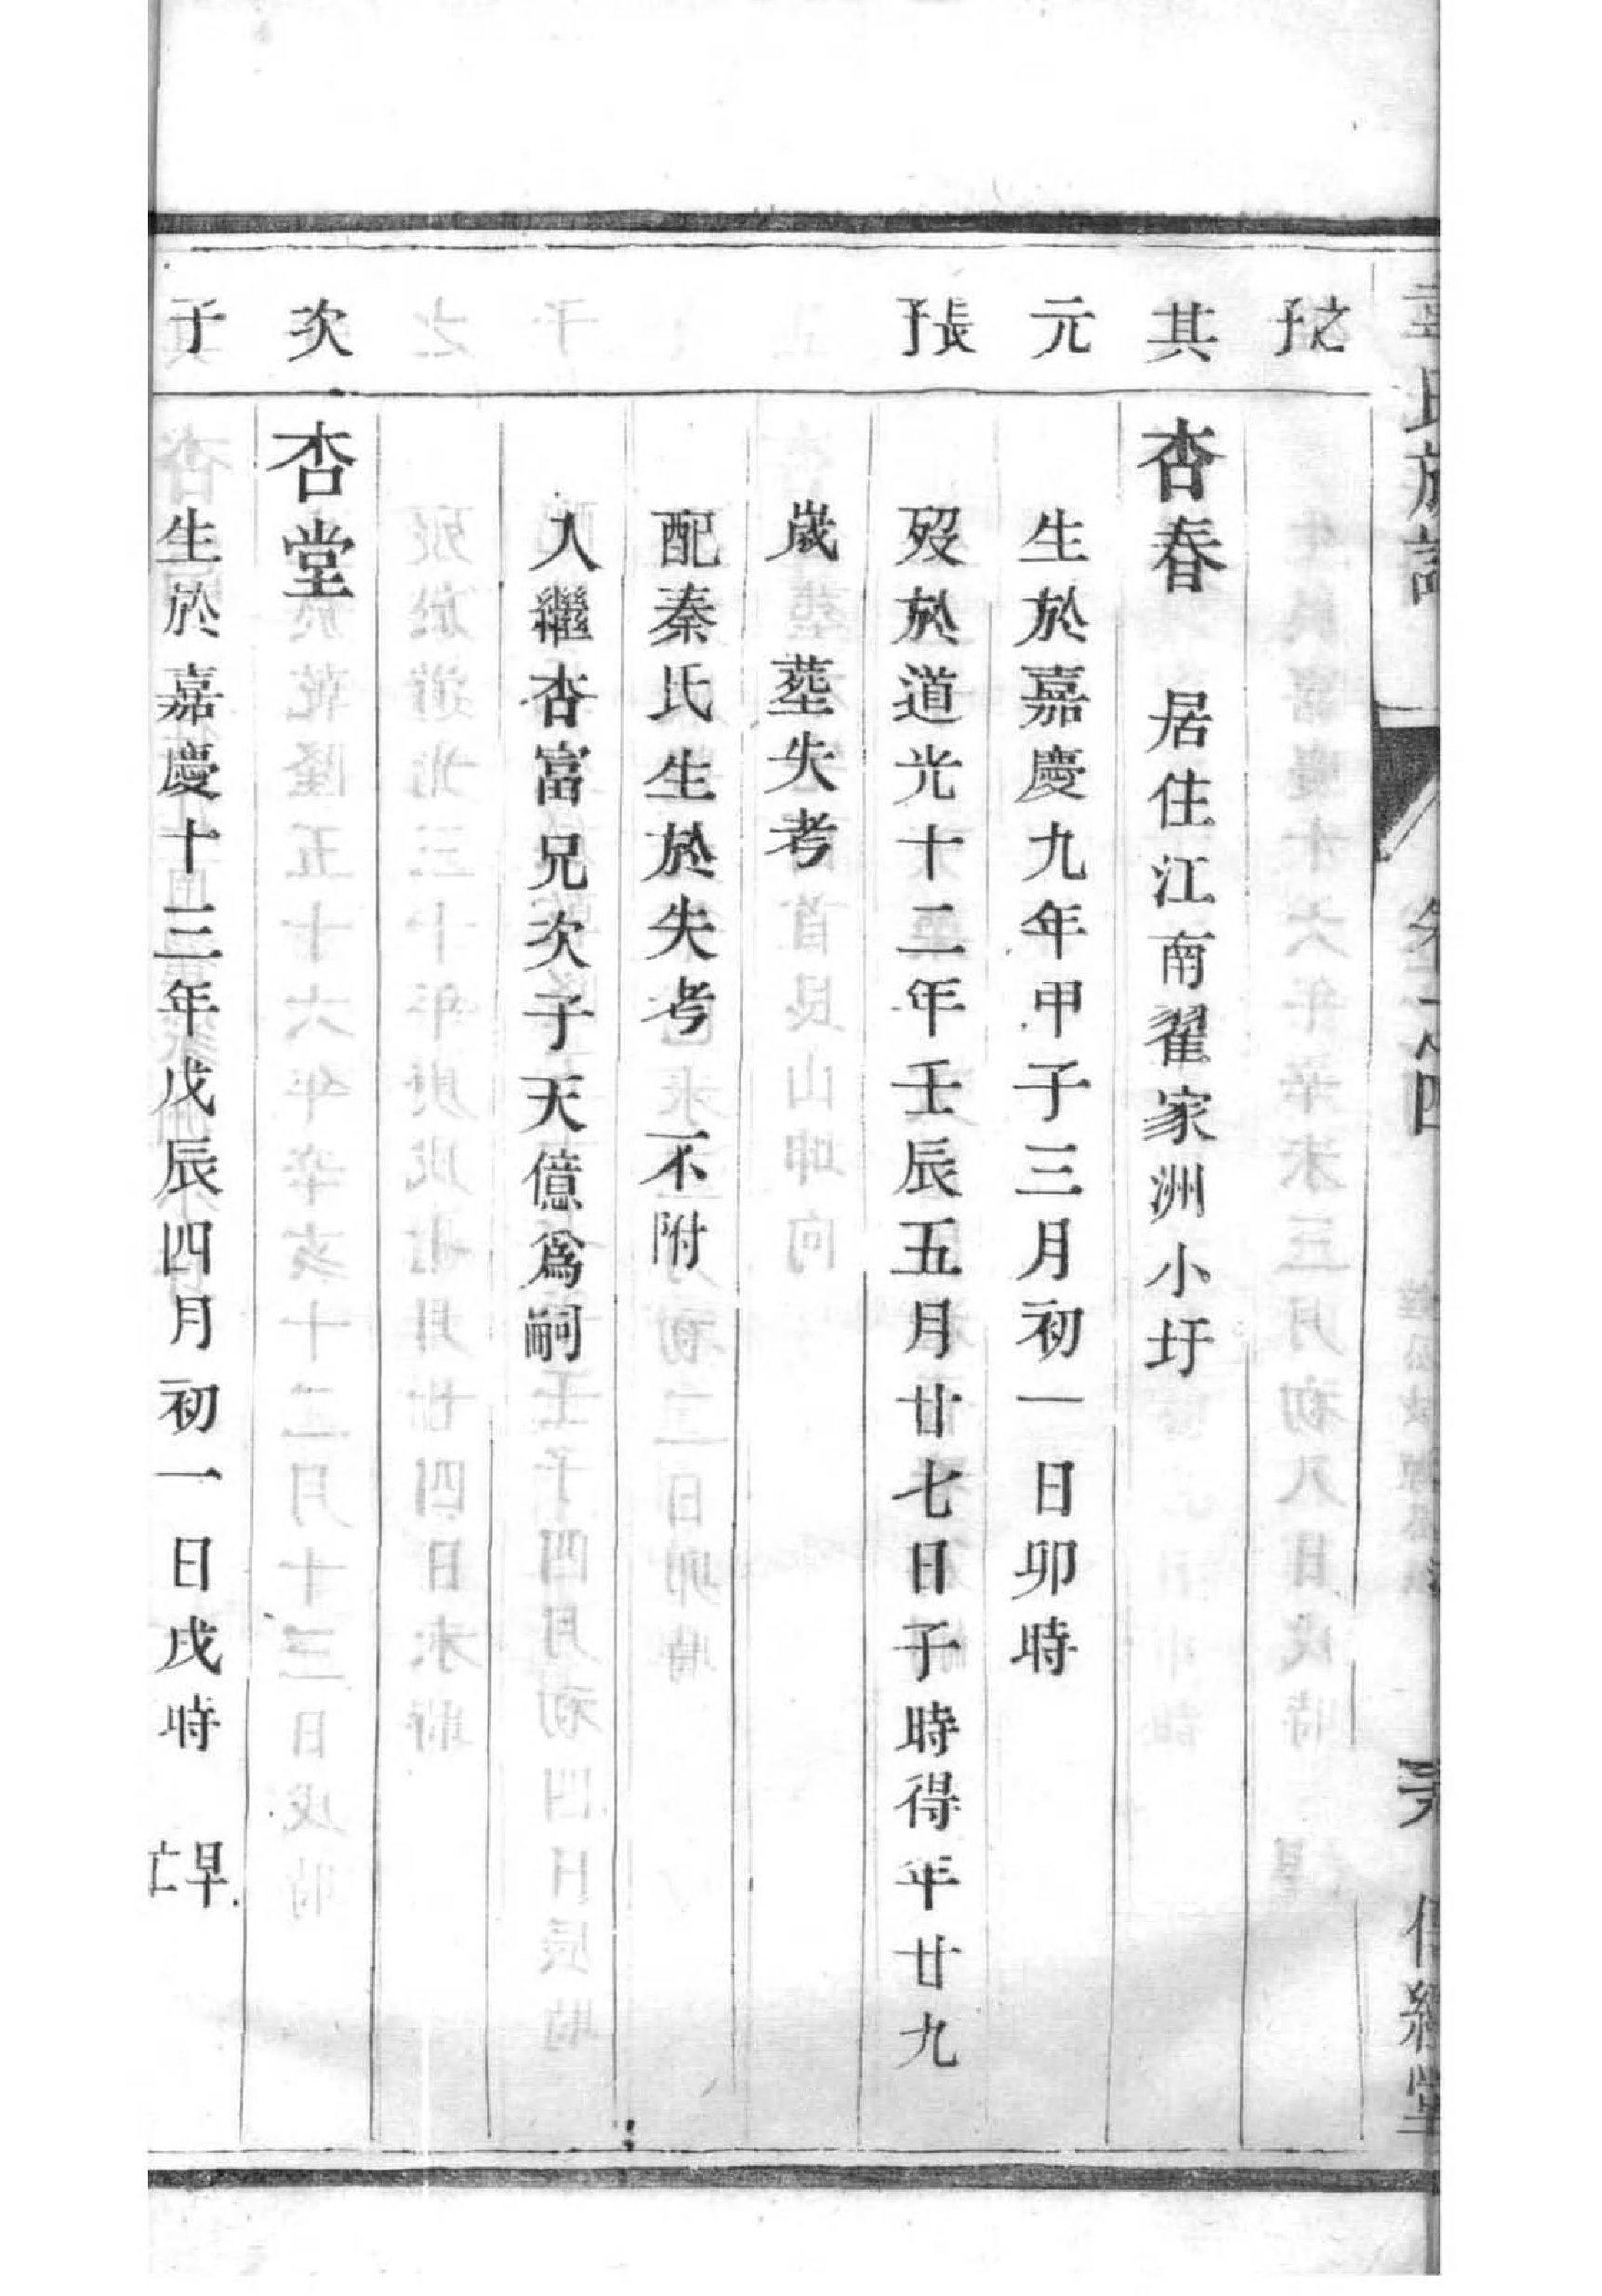 氏族譜
之子
其
杏春 居住江南翟家洲小圩
元
生於嘉慶九年甲子三月初一日卯時
張子
歿於道光十二年壬辰五月廿七日子時得年廿九
歲 葬失考
配秦氏生於失考 不附
入繼杏富兄次子天億爲嗣
次
杏堂
子
生於嘉慶十三年戊辰四月初一日戌時 早亡